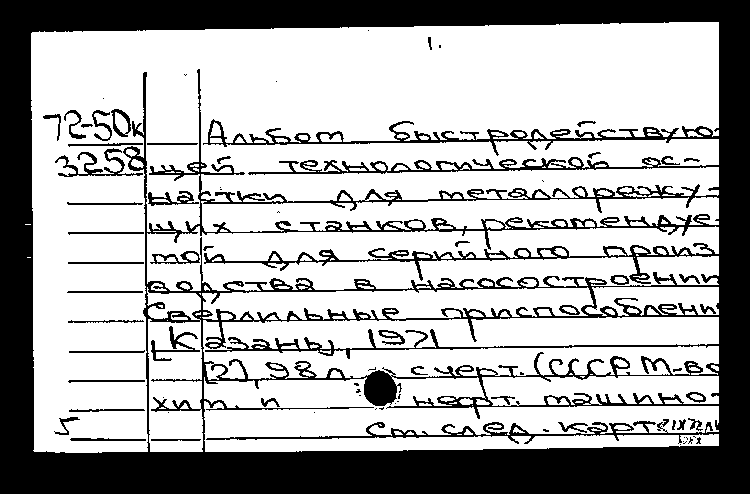 1.
72-50к Альбом быстродействую-
3258 щей технологической ос-
настки для металлорежу-
щих станков, рекомендуе-
мой для серийного произ
водства в насосостроении
Сверлильные приспособлени
[Казань], 1971.
[2], 98 л. с черт. (СССР. М-во
хим. и нефт. машино-
5 См. след. карт